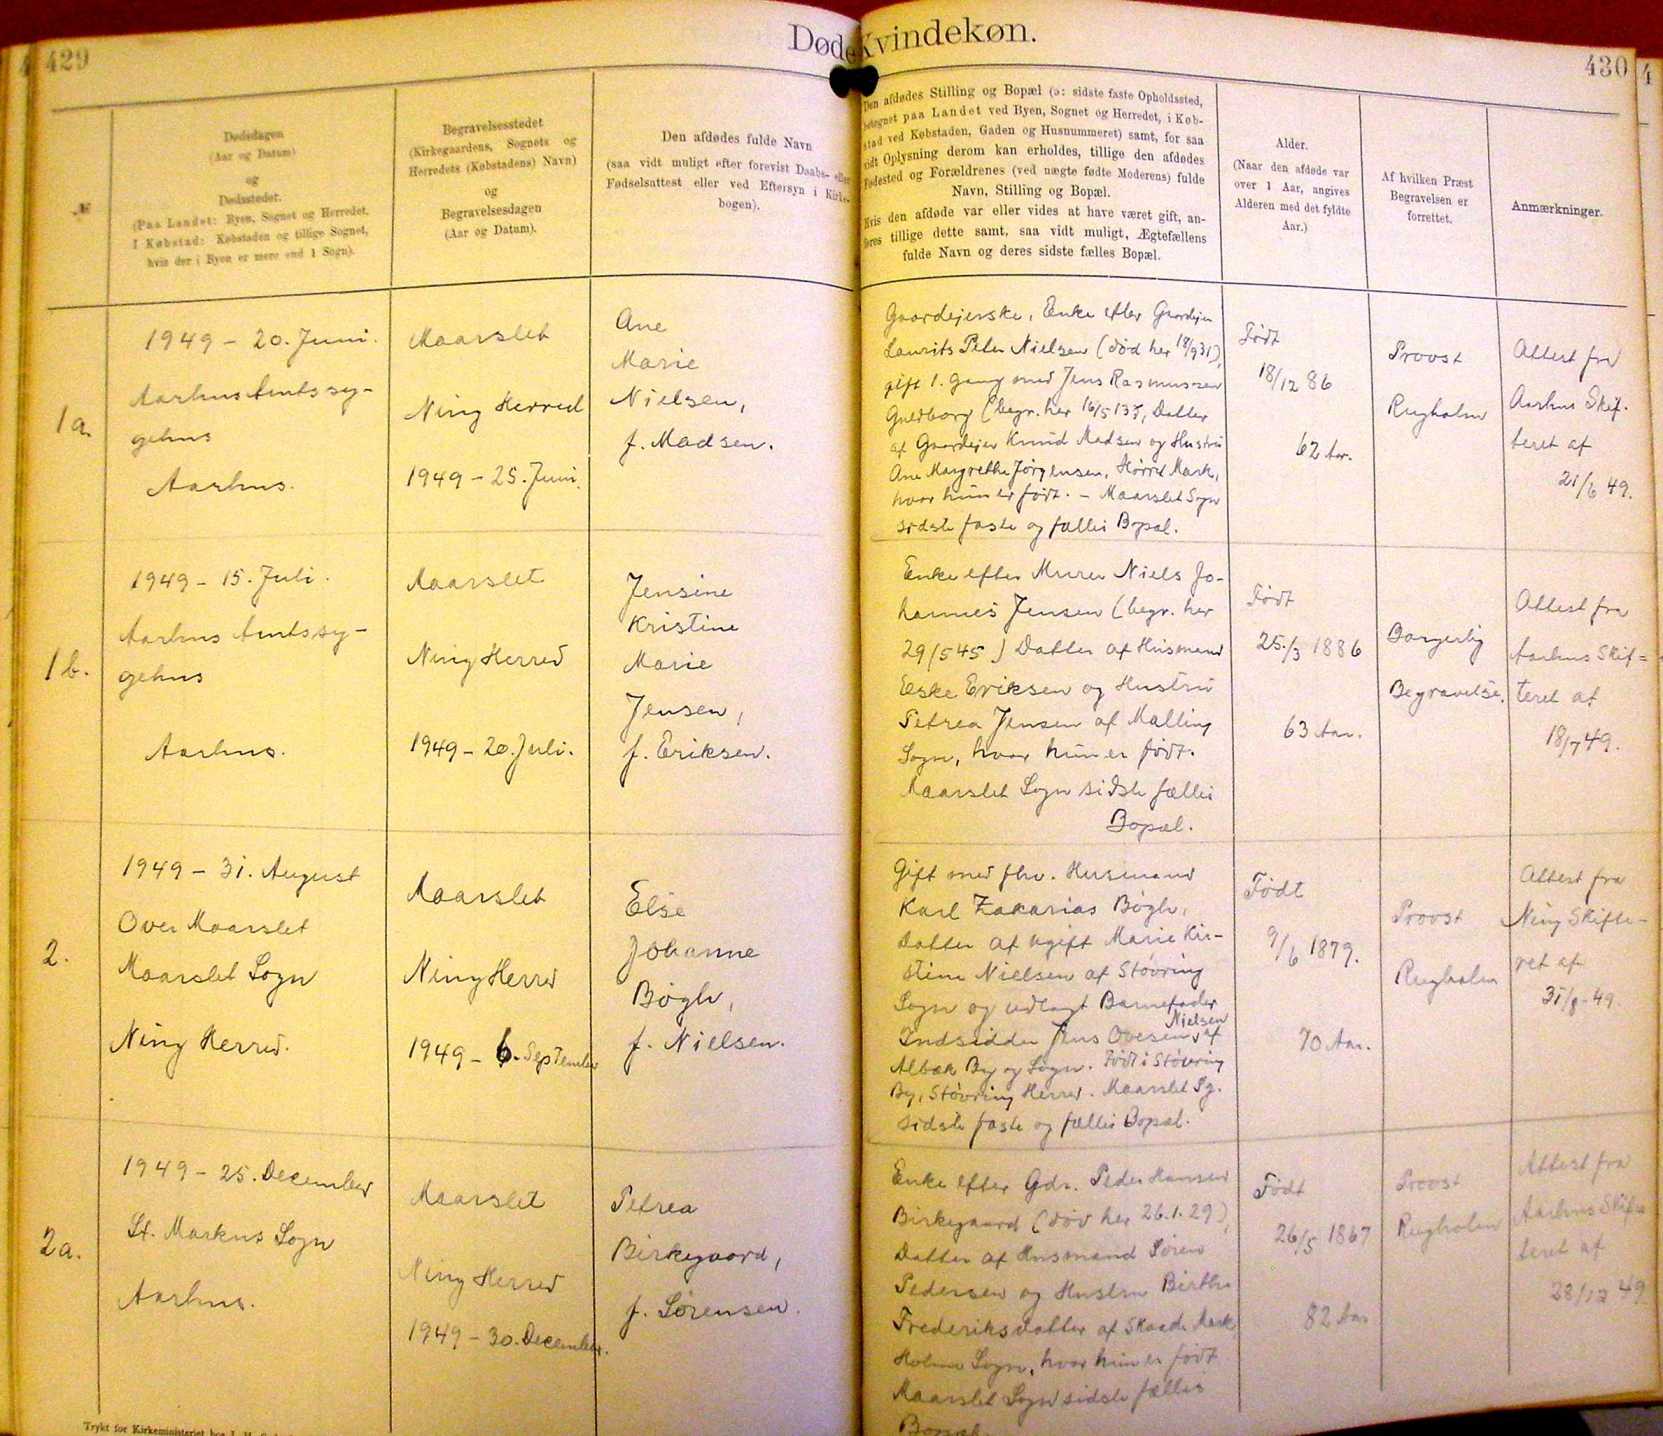 429
Døde Kvindekøn.
430
№
Dødsdagen
(Aar og Datum)
og
Dødsstedet.
(Paa Landet: Byen, Sognet og Herredet.
I Købstad: Købstaden og tillige Sognet,
hvis der i Byen er mere end 1 Sogn).
Begravelsesstedet
(Kirkegaardens, Sognets og
Herredets (Købstadens) Navn)
og
Begravelsesdagen
(Aar og Datum).
Den afdødes fulde Navn
(saa vidt muligt efter forevist Daabs- eller
Fødselsattest eller ved Eftersyn i Kirke-
bogen).
Den afdødes Stilling og Bopæl (ɔ: sidste faste Opholdssted,
betegnet paa Landet ved Byen, Sognet og Herredet, i Køb-
stad ved Købstaden, Gaden og Husnummeret) samt, for saa
vidt Oplysning derom kan erholdes, tillige den afdødes
Fødested og Forældrenes (ved uægte fødte Moderens) fulde
Navn, Stilling og Bopæl.
Hvis den afdøde var eller vides at have været gift, an-
føres tillige dette samt, saa vidt muligt, Ægtefællens
fulde Navn og deres sidste fælles Bopæl.
Alder.
(Naar den afdøde var
over 1 Aar, angives
Alderen med det fyldte
Aar.)
Af hvilken Præst
Begravelsen er
forrettet.
Anmærkninger.
1a.
1949 - 20. Juni.
Aarhus Amtssy-
gehus
Aarhus.
Maarslet
Ning Herred
1949 - 25. Juni.
Ane
Marie
Nielsen,
f. Madsen.
Gaardejerske, Enke efter Gaardejer
Laurits Peter Nielsen (død her 18/9 31),
gift 1. Gang med Jens Rasmussen
(begr. her 16/5 13), Datter
af Gaardejer Knud Madsen og Hustru
Ane Margrethe Jørgensen, Hørret Mark,
hvor hun er født. - Maarslet Sogn
sidste faste og fælles Bopæl.
Født
18/12 86
62 Aar.
Provst
Rugholm
Attest fra
Aarhus Skif-
teret af
21/6 49.
1b.
1949 - 15. Juli.
Aarhus Amtssy-
gehus
Aarhus.
Maarslet
Ning Herred
1949 - 20. Juli.
Jensine
Kristine
Marie
Jensen,
f. Eriksen.
Enke efter Murer Niels Jo-
hannes Jensen (begr. her
29/5 45) Datter af Husmand
Eske Eriksen og Hustru
Petrea Jensen af Malling
Sogn, hvor hun er født.
Maarslet Sogn sidste fælles
Bopæl.
Født
25./3 1886
63 Aar.
Borgerlig
Begravelse.
Attest fra
Aarhus Skif=
teret af
18/7 49.
2.
1949 - 31. August
Over Maarslet
Maarslet Sogn
Ning Herred.
Maarslet
Ning Herred
1949 - 6. September
Else
Johanne
Bøgh,
f. Nielsen.
Gift med fhv. Husmand
Karl Zakarias Bøgh,
Datter af ugift Marie Kir-
stine Nielsen af Støvring
Sogn og udlagt Barnefader
Indsidder Jens Ovesen Nielsen af
Albæk By og Sogn. Født i Støvring
By, Støvring Herred. Maarslet Sg.
sidste faste og fælles Bopæl.
Født
9/6 1879.
70 Aar.
Provst
Rugholm
Attest fra
Ning Skifte-
ret af
31/8 - 49.
2a.
1949 - 25. December
St. Markus Sogn
Aarhus.
Maarslet
Ning Herred
1949 - 30. December.
Petrea
Birkegaard,
f. Sørensen.
Enke efter Gdr. Peder Hansen
Birkegaard (død her 26.1.29),
Datter af Husmand Søren
Pedersen og Hustru Birthe
Frederiksdatter af Skaade Mark
Holme Sogn, hvor hun er født
Maarslet Sogn sidste fælles
Bopæl.
Født
26/5 1867
82 Aar
Provst
Rugholm
Attest fra
Aarhus Skif=
teret af
28/12 49
Trykt for Kirkeministeriet hos